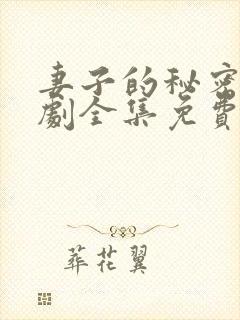 妻子的秘密
劇全集免費
葬花翼